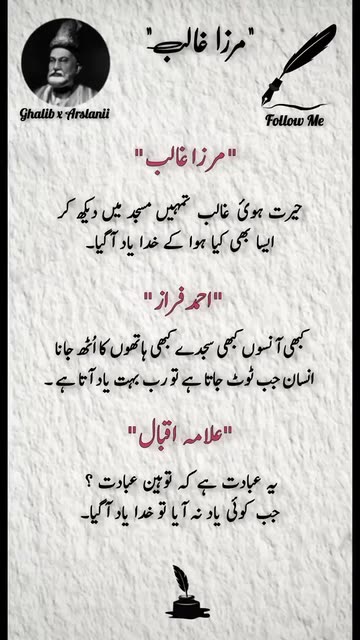 "مرزا غالب"
Ghalib x Arslanii
Follow Me
"مرزا غالب"
حیرت ہوئی غالب تمہیں مسجد میں دیکھ کر
ایسا بھی کیا ہوا کے خدا یاد آگیا۔
"احمد فراز"
کبھی آنسوں کبھی سجدے کبھی ہاتھوں کا اُٹھ جانا
انسان جب ٹوٹ جاتا ہے تو رب بہت یاد آتا ہے ۔
"علامہ اقبال"
یہ عبادت ہے کہ توہین عبادت ؟
جب کوئی یاد نہ آیا تو خدا یاد آگیا۔